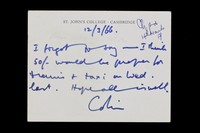 ST. JOHN'S COLLEGE · CAMBRIDGE
12/3/66.
I forgot to say — I think
50/- would be proper for
trains + taxi on Wed.
last. Hope all is well.
Colin